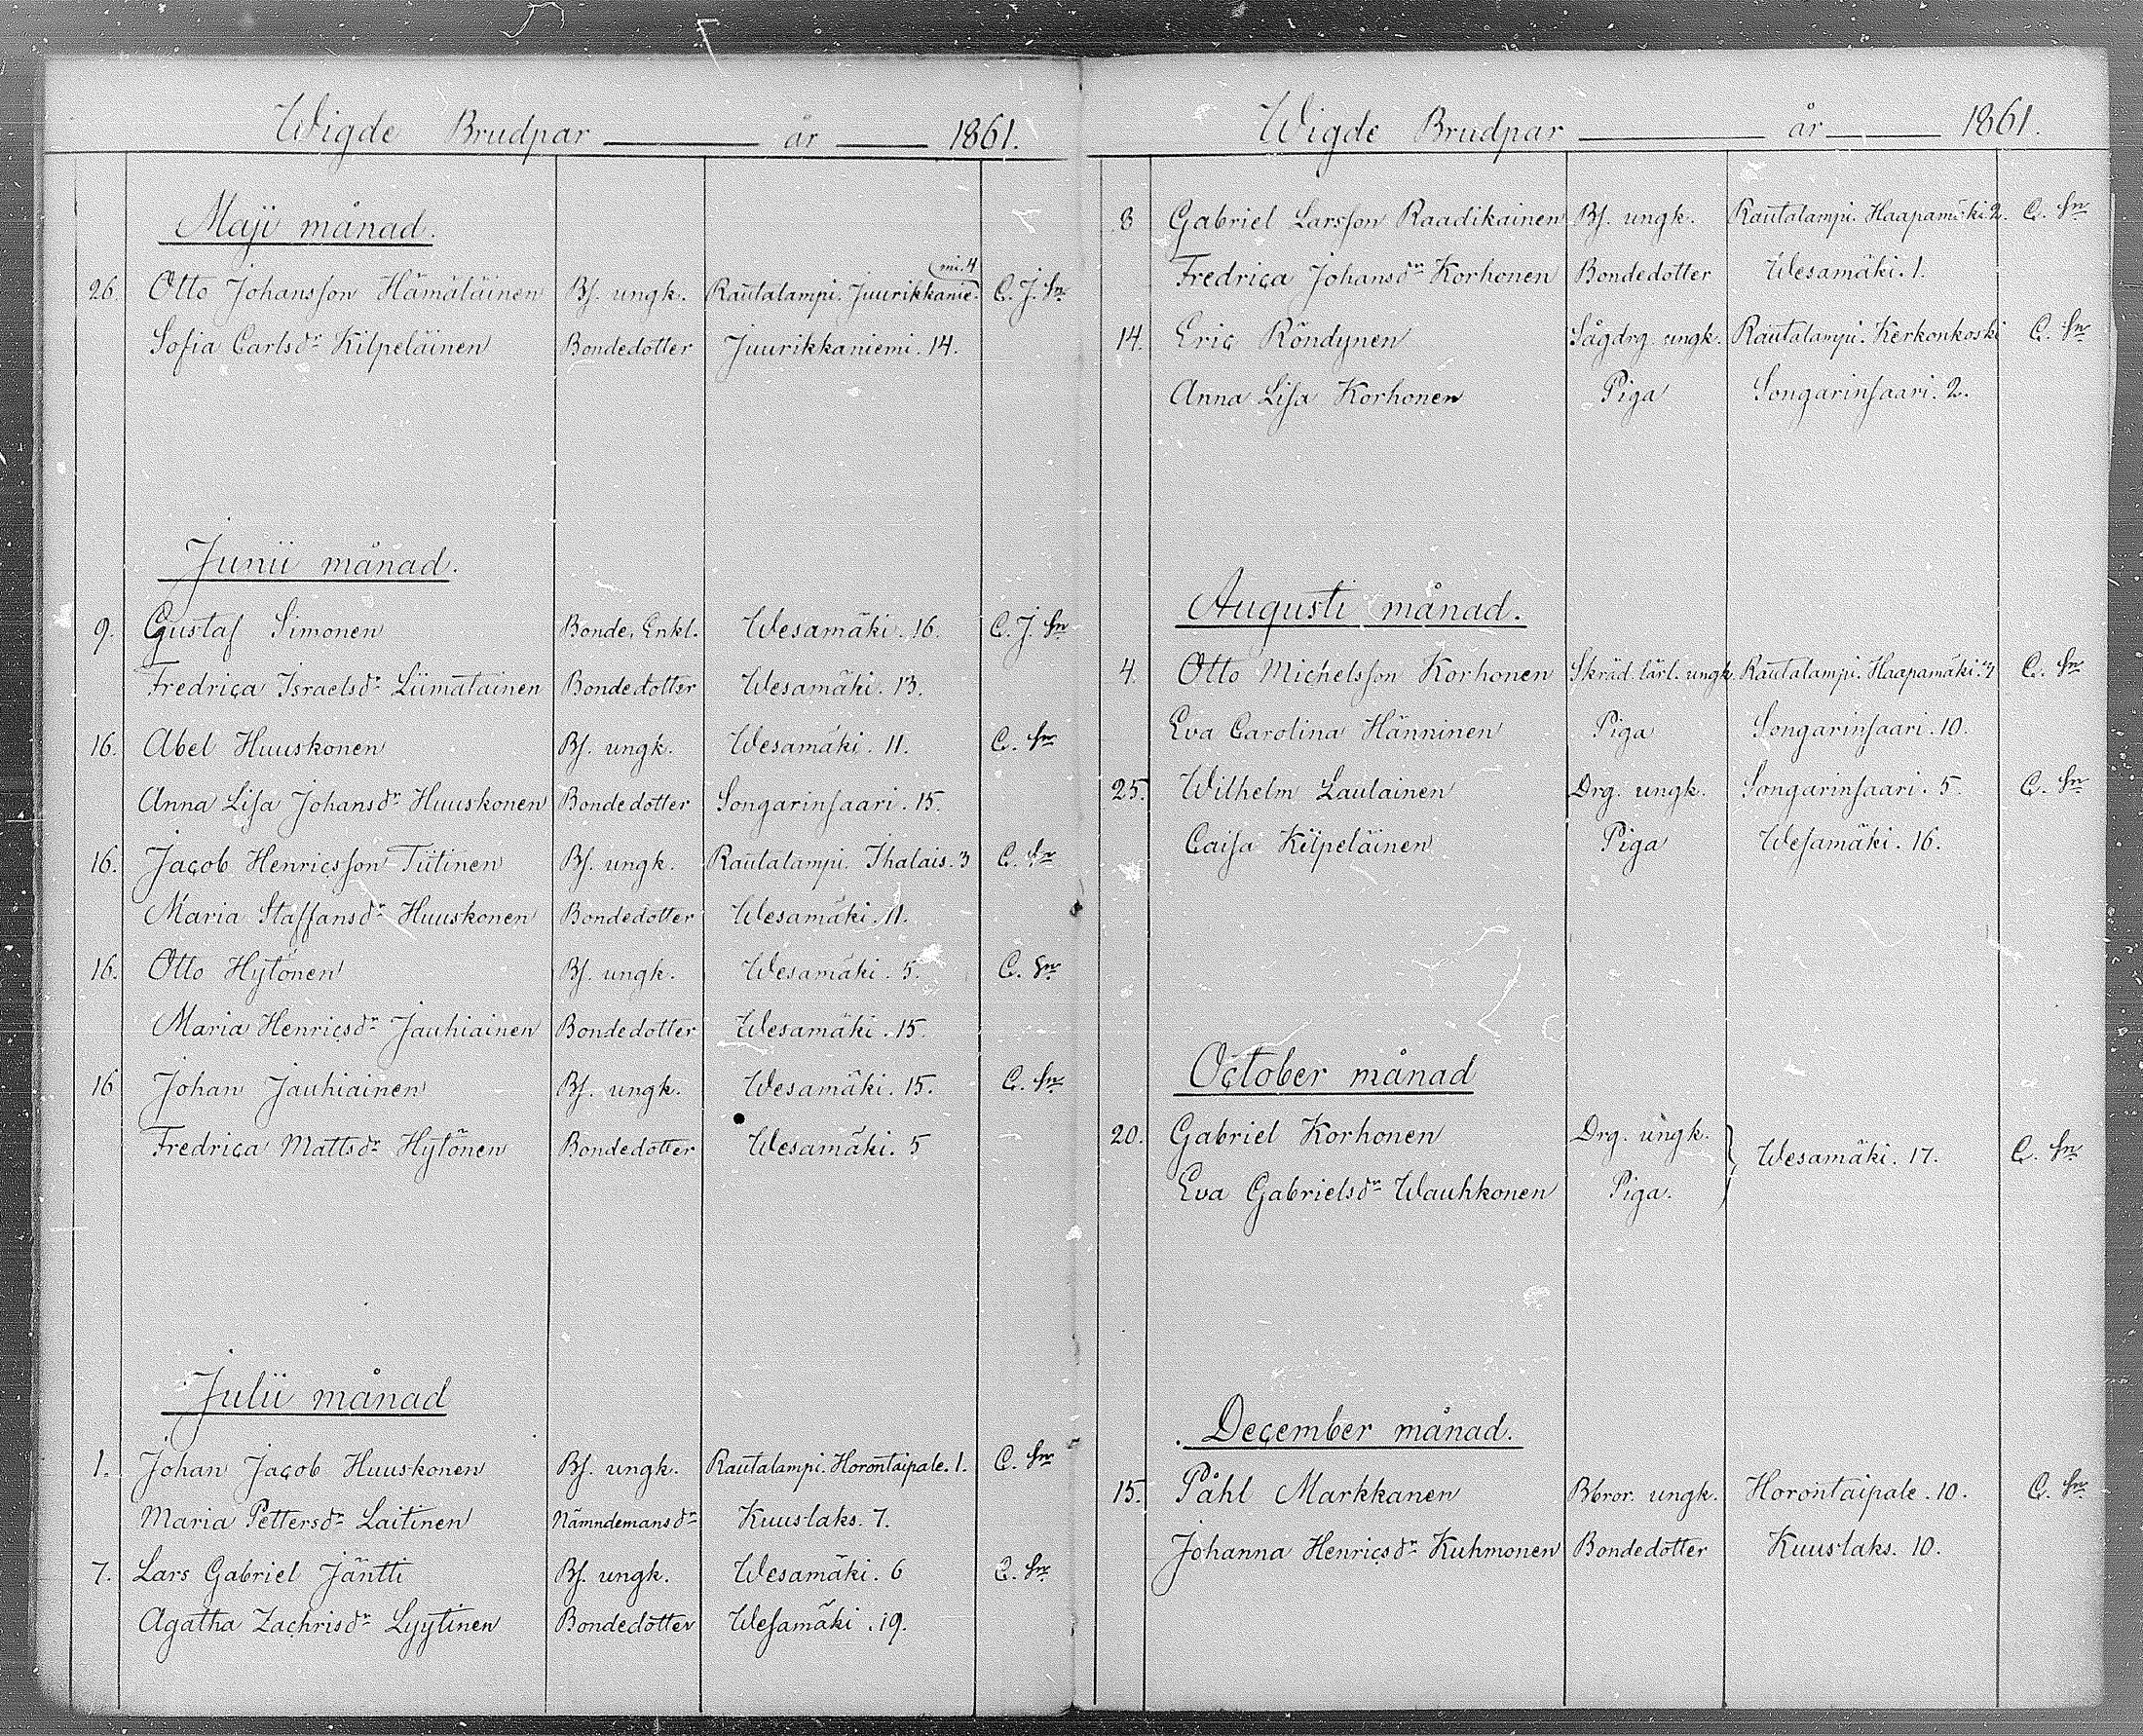 Wigde Brudpar år 1861.
Maji månad.
26. Otto Johansson Hämäläinen Bs. ungk. Rautalampi. Juurikkanie- mi. 4 C. J. Sn
Sofia Carlsdr Kilpeläinen Bondedotter Juurikkaniemi. 14.
Junii månad.
9. Gustaf Simonen Bonde, Enkl. Wesamäki. 16. C. J. Sn
Fredrica Israelsdr Liimatainen Bondedotter Wesamäki. 13.
16. Abel Huuskonen Bs. ungk. Wesamäki. 11. C. Sn
Anna Lisa Johansdr Huuskonen Bondedotter Songarinsaari. 15.
16. Jacob Henricsson Tiitinen Bs. ungk. Rautalampi. Ihalais. 3 C. Sn
Maria Staffansdr Huuskonen Bondedotter Wesamäki. 11.
16. Otto Hytönen Bs. ungk. Wesamäki. 5. C. Sn
Maria Henricsdr Jauhiainen Bondedotter Wesamäki. 15.
16 Johan Jauhiainen Bs. ungk. Wesamäki. 15. C. Sn
Fredrica Mattsdr Hytönen Bondedotter Wesamäki. 5
Julii månad
1. Johan Jacob Huuskonen Bs. ungk. Rautalampi. Horontaipale. 1. C. Sn
Maria Pettersdr Laitinen Nämndemansdr Kuuslaks. 7.
7. Lars Gabriel Jäntti Bs. ungk. Wesamäki. 6 C. Sn
Agatha Zachrisdr Lyytinen Bondedotter Wesamäki. 19.
Wigde Brudpar år 1861.
8 Gabriel Larsson Raadikainen Bs. ungk. Rautalampi. Haapamäki. 2. C. Sn
Fredrica Johansdr Korhonen Bondedotter Wesamäki. 1.
14. Eric Röndynen Sågdrg. ungk. Rautalampi. Kerkonkoski C. Sn
Anna Lisa Korhonen Piga Songarinsaari. 2.
Augusti månad.
4. Otto Michelsson Korhonen Skräd. lärl. ungk. Rautalampi. Haapamäki. C. Sn
Eva Carolina Hänninen Piga Songarinsaari. 10.
25. Wilhelm Laulainen Drg. ungk. Songarinsaari. 5. C. Sn
Caisa Kilpeläinen Piga Wesamäki. 16.
October månad
20. Gabriel Korhonen Drg. ungk. Wesamäki. 17. C. Sn
Eva Gabrielsdr Wauhkonen Piga.
December månad.
15. Påhl Markkanen Bbror. ungk. Horontaipale. 10. C. Sn
Johanna Henricsdr Kuhmonen Bondedotter Kuuslaks. 10.